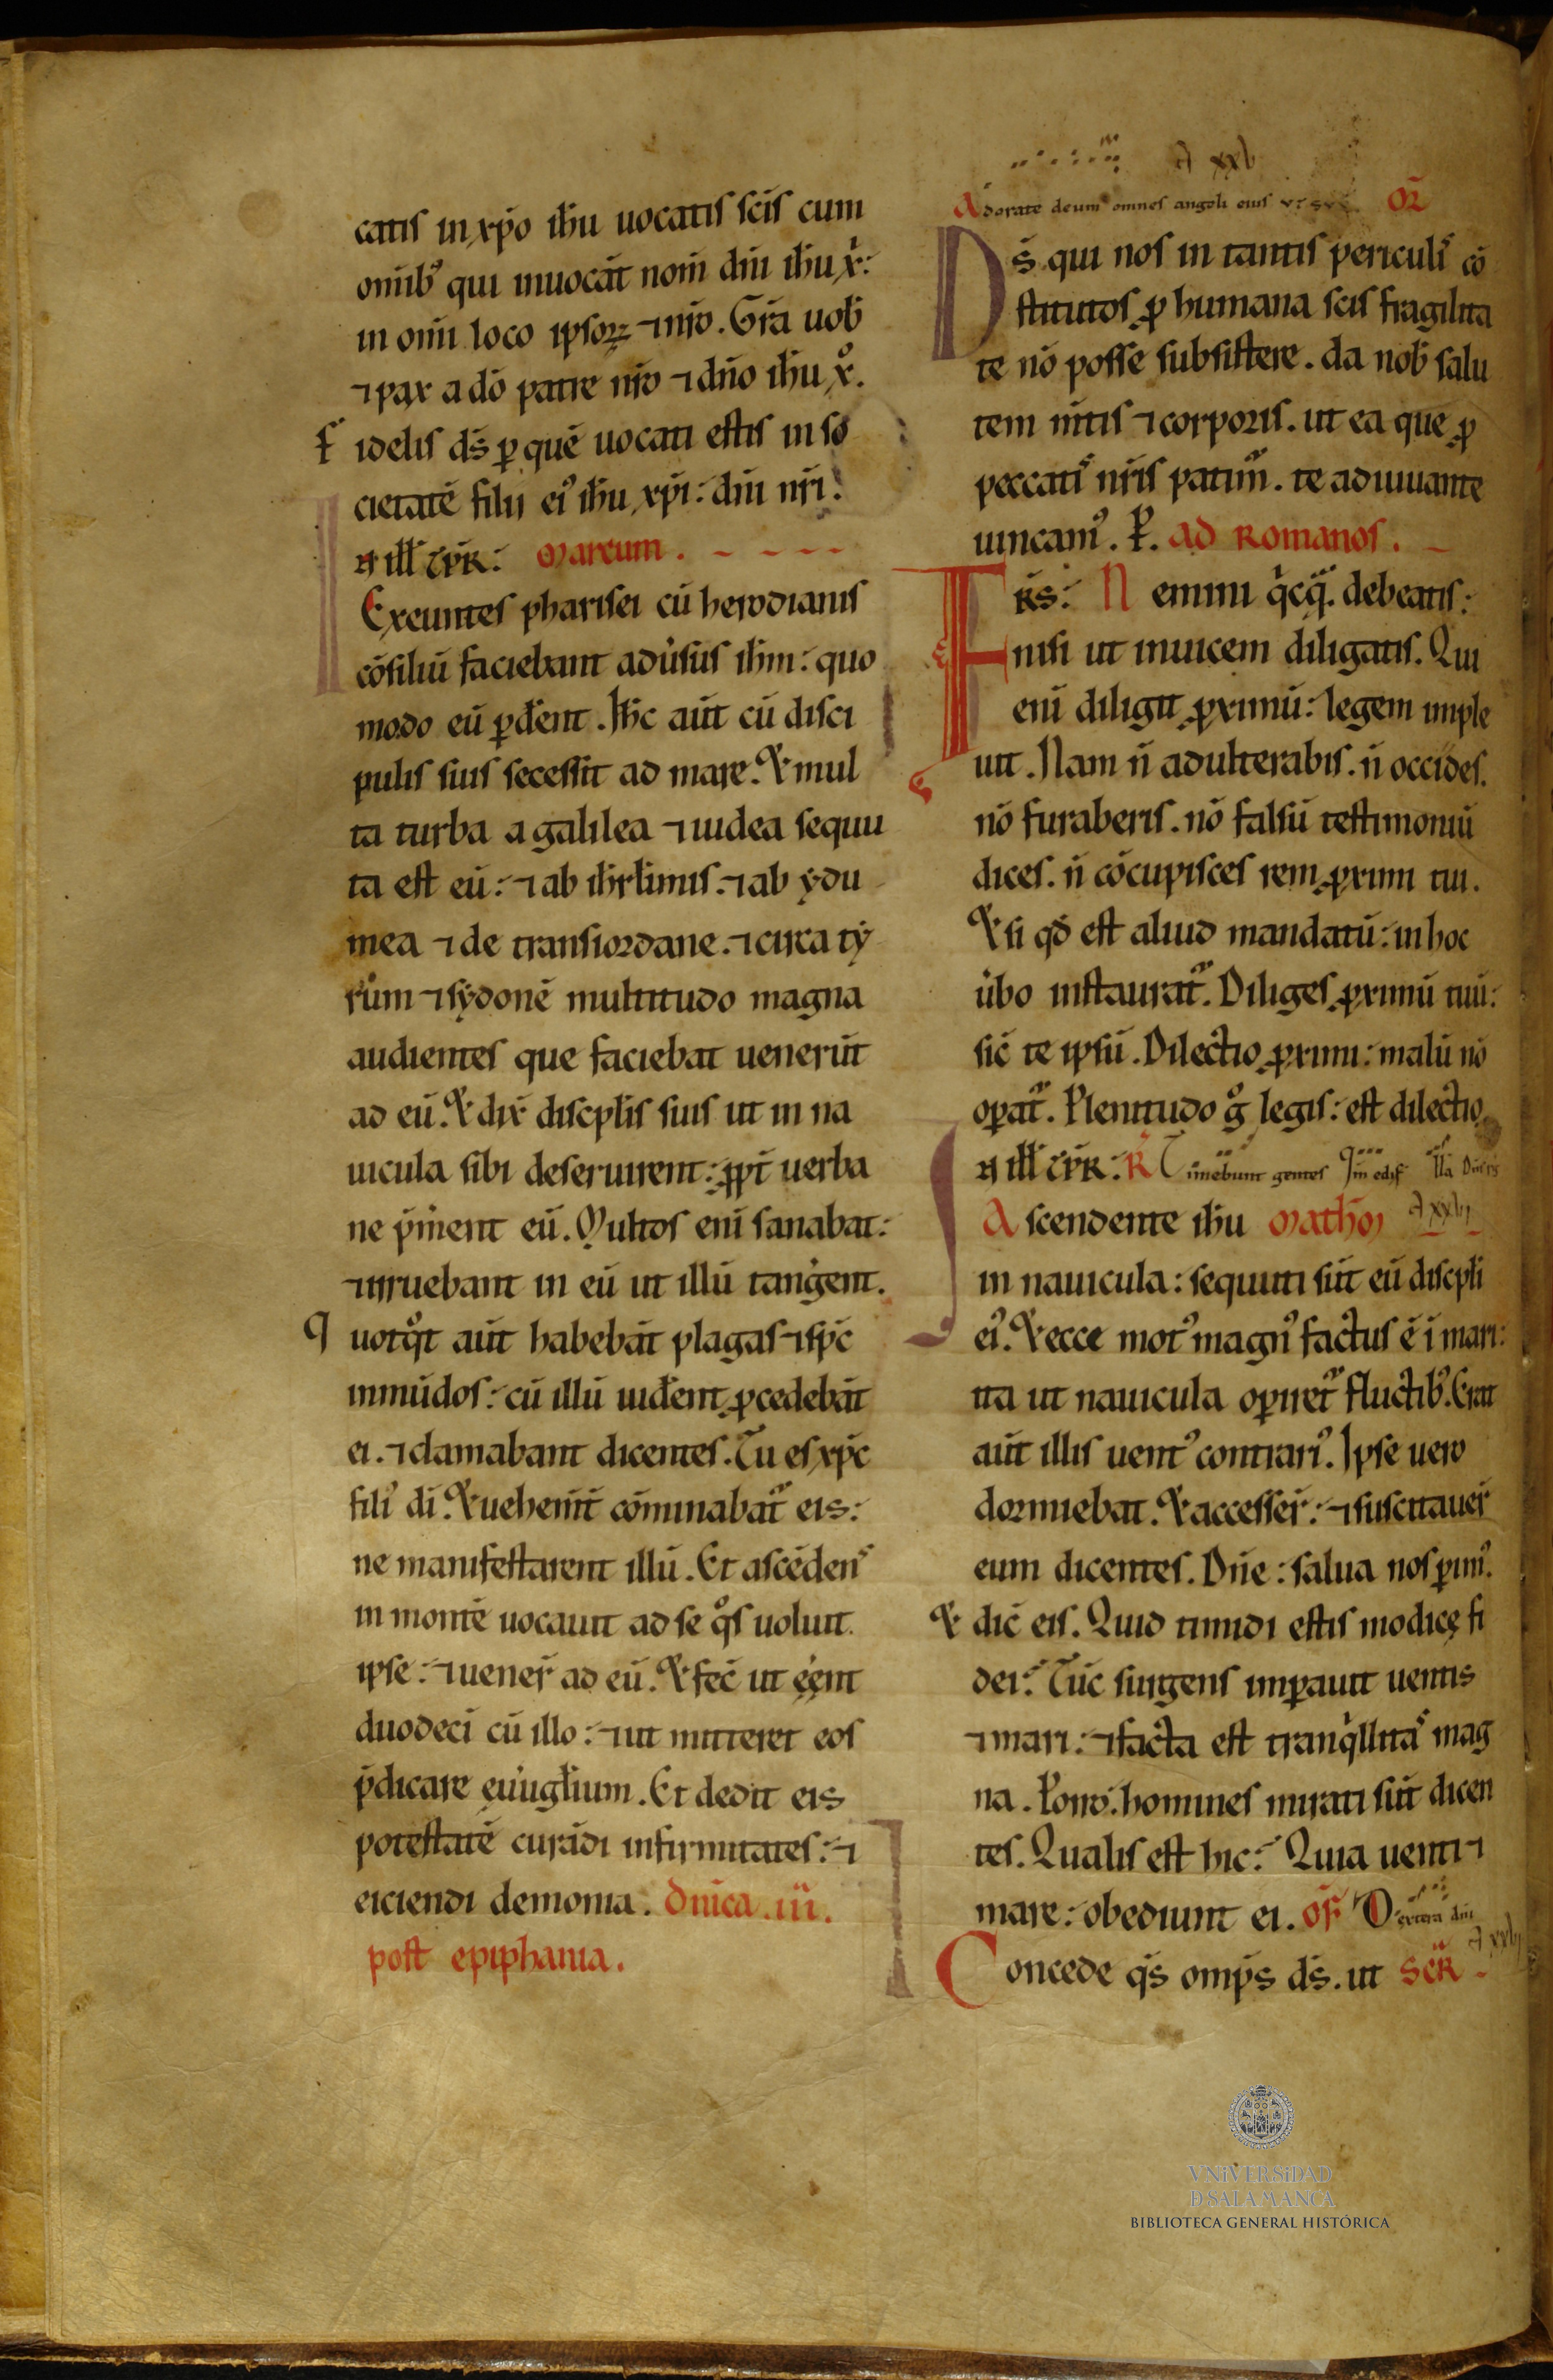 catis in xp̄o ih̄u uocatis sc̄is cum
om̄ib᾽ qui inuocāt nom̄ dn̄i ih̄u x̄:
in om̄i loco ipsoꝝ ⁊ nr̄o. Gr̄a uob̄
⁊ pax a dō patre nr̄o ⁊ dn̄o ih̄u x̊.
fidelis ds̄ ꝑ quē uocati estis in so
cietatē filii ei᾽ ih̄u xp̄i: dn̄i nr̄i.
Marcum.
Exeuntes pharisei cū herodianis
cōsiliū faciebant adūsus ih̄m: quo
modo eū ꝑd̄ent. Ih̄c aūt cū disci
pulis suis secessit ad mare. Et mul
ta turba a galilea ⁊ iudea sequu
ta est eū: ⁊ ab ih̄rłimis. ⁊ ab ydu
mea ⁊ de transiordane. ⁊ circa ty
rum ⁊ sydonē multitudo magna
audientes que faciebat uenerūt
ad eū. Et dix̄ discplīs suis ut in na
uicula sibi deseruirent: ꝓpt̄ uerba
ne p̄m̄ent eū. Multos enī sanabat:
⁊ irruebant in eū ut illū tanḡent.
Quotq̊t aūt habebāt plagas ⁊ sp̄c
inmūdos: cū illū uid̄ent ꝓcedebāt
ei. ⁊ clamabant dicentes. Tu es xp̄c
fili᾽ dī. Et uehem̄t cōminabat᷑ eis:
ne manifestarent illū. Et ascēdens
in montē uocauit ad se q̊s uoluit
ipse: ⁊ uener̄ ad eū. Et fec̄ ut eēnt
duodecī cū illo: ⁊ ut mitteret eos
p̄dicare eu̇ugłium. Et dedit eis
potestatē curādi infirmitates: ⁊
eiciendi demonia. Dn̄ica .iii.
post epiphania.
A xxv
Adorate deum omnes angeli eius OR̄
Ds̄ qui nos in tantis periculis cō
stitutos ꝓ humana scis fragilita
te nō posse subsistere. da nob̄ salu
tem m̄tis ⁊ corporis. ut ea que ꝓ
peccatis nr̄is patim᷑. te adiuuante
uincam᾽. P̄. Ad Romanos.
Fr̄s: Nemini q̍cq̃. debeatis:
nisi ut inuicem diligatis. Qui
enī diligit ꝓximū: legem imple
uit. Nam n̄ adulterabis. n̄ occides.
nō furaberis. nō falsū testimoniū
dices. n̄ cōcupisces rem ꝓximi tui.
Et si qd̄ est aliud mandatū: in hoc
ūbo instaurat᷑. Diliges ꝓximū tuū:
sic̄ te ipsū. Dilectio ꝓximi: malū nō
oꝑat᷑. Plenitudo g̊ legis: est dilectio
R Timebunt gentes
Ascendente ih̄u Math̄m A xxvi
in nauicula: secuti sūt eū discpłi
ei᾽. Et ecce mot᾽ magn᾽ factus ē ī mari:
ita ut nauicula oꝑiret᷑ fluctib᾽. Erat
aūt illis uent᾽ contrari᾽. Ipse uero
dormiebat. Et accesser̄: ⁊ suscitauer̄
eum dicentes. Dn̄e: salua nos ꝑim᾽.
Et dic̄ eis. Quid timidi estis modicę fi
dei: Tūc surgens imꝑauit uentis
⁊ mari: ⁊ facta est tranq̍llitas mag
na. Porro. homines mirati sūt dicen
tes. Qualis est hic: Quia uenti ⁊
mare: obediunt ei. Of̄ Dextera dn̄i
Concede qs̄ omp̄s ds̄. ut SCR̄
VNiVERSiDAD
D SALAMANCA
BIBLIOTECA GENERAL HISTÓRICA